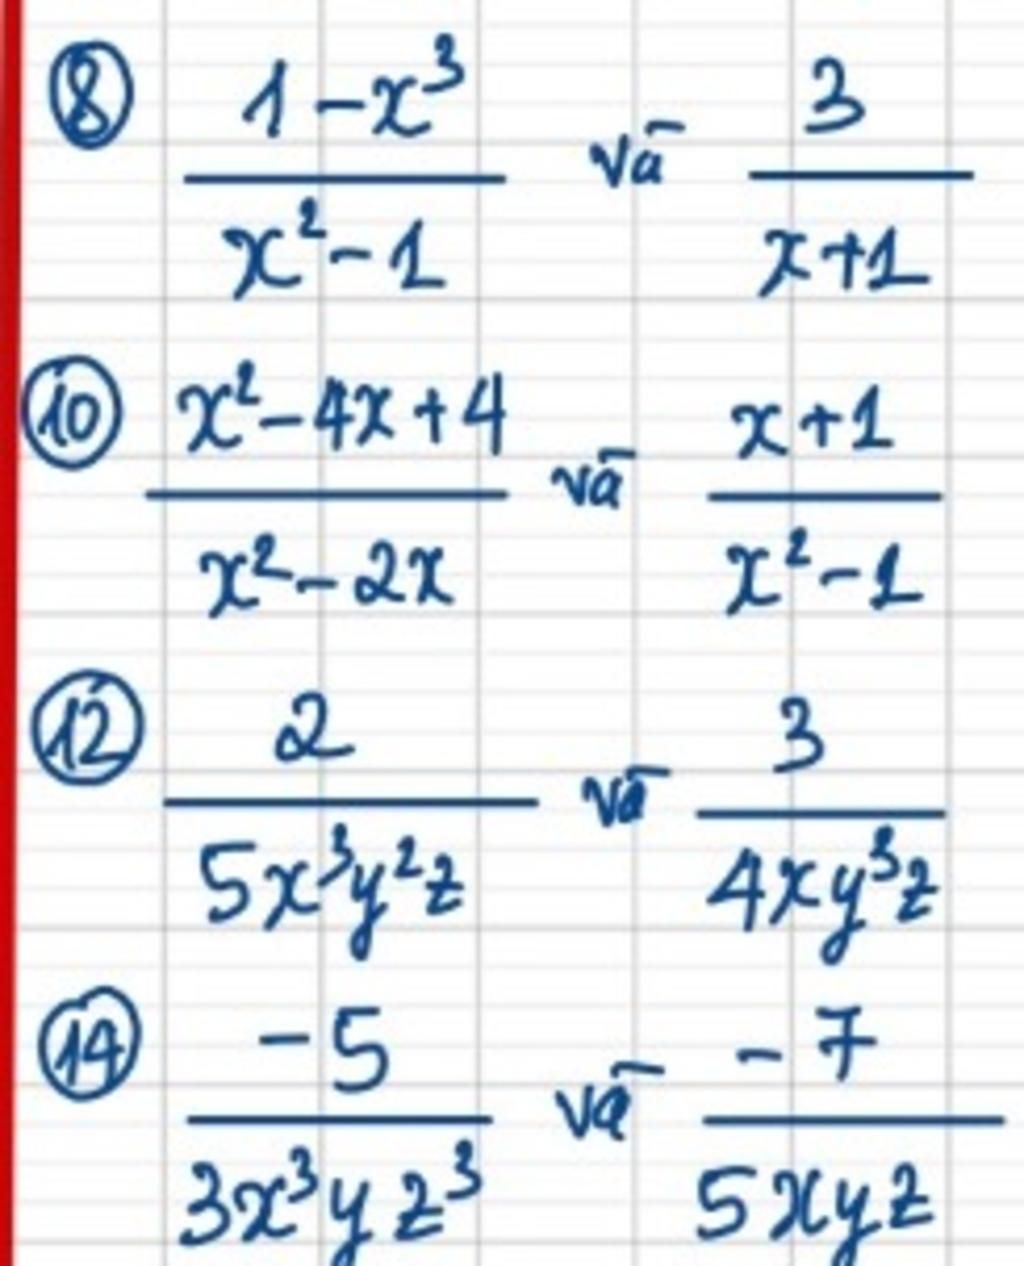 ⑧ (1 - x³)/(x² - 1) và 3/(x + 1)
⑩ (x² - 4x + 4)/(x² - 2x) và (x + 1)/(x² - 1)
⑫ 2/(5x³y²z) và 3/(4xy³z)
⑭ -5/(3x³yz³) và -7/(5xyz)